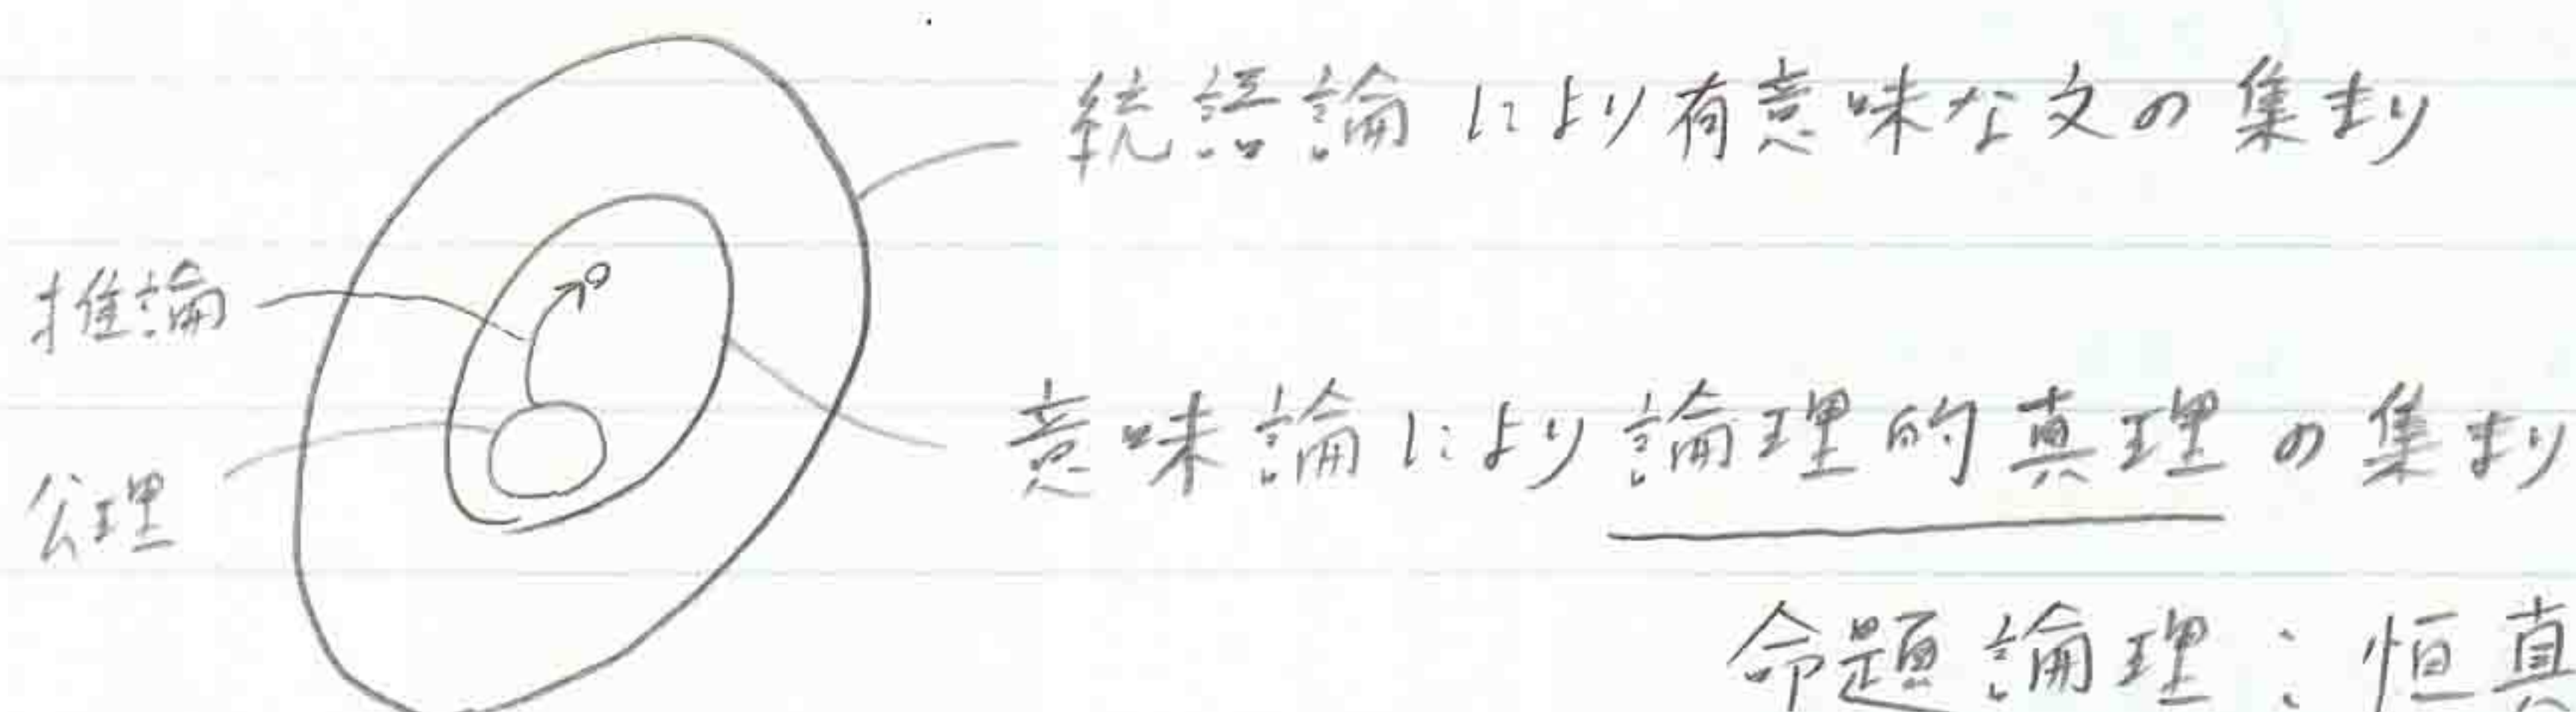 統語論により有意味な文の集まり
推論
意味論により論理的真理の集まり
公理
命題論理：恒真